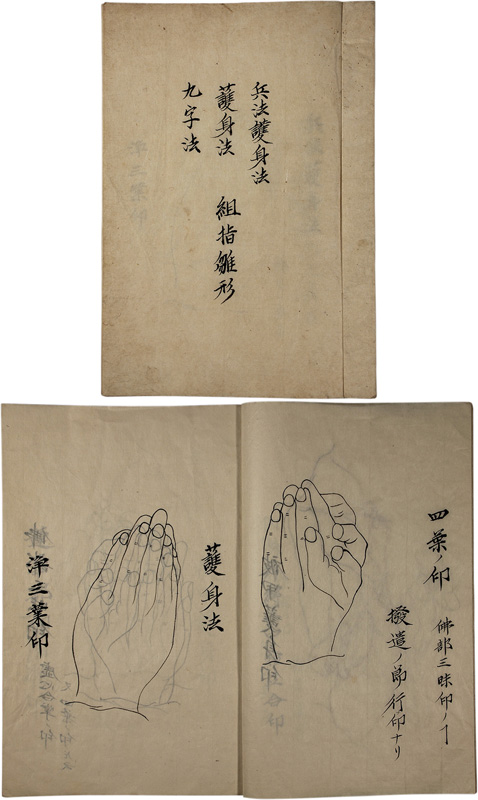 兵法護身法
護身法
九字法
組指雛形
四葉ノ印
佛部三昧印ノ
撥遣ノ節行印ナリ
護身法
浄三葉印